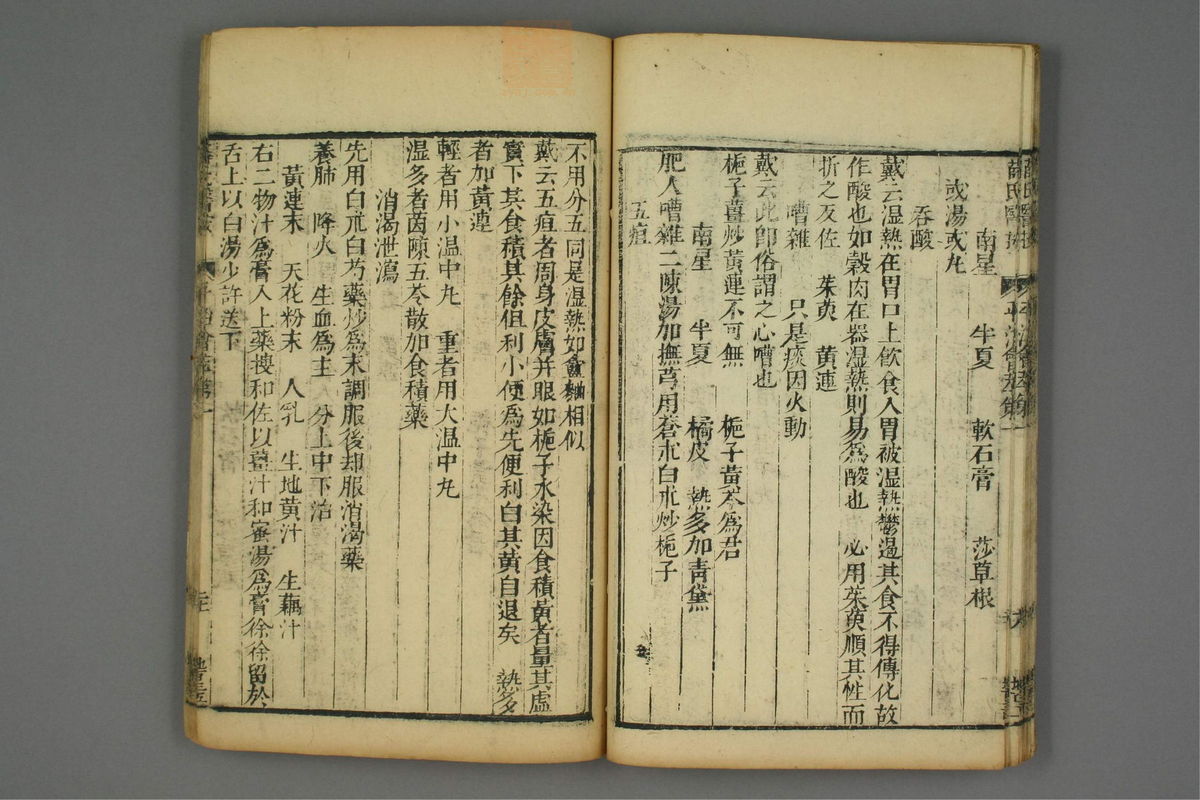 薛氏醫按
南星 半夏 軟石膏 莎草根
或湯或丸
吞酸
戴云湿熱在胃口上飲食入胃被湿熱鬱遏其食不得傳化故
作酸也如穀肉在器湿熱則易爲酸也 必用茱萸順其性而
折之反佐 茱萸 黃連
嘈雜 只是痰因火動
戴云此卽俗謂之心嘈也
梔子薑炒黃連不可無 梔子黃芩爲君
南星 半夏 橘皮 熱多加青黛
肥人嘈雜二陳湯加撫芎用蒼朮白朮炒梔子
五疸
不用分五同是湿熱如盦麯相似
戴云五疸者周身皮膚并眼如梔子水染因食積黃者量其虛
實下其食積其餘但利小便爲先便利白其黃自退矣 熱多
者加黃連
輕者用小温中丸 重者用大温中丸
湿多者茵蔯五苓散加食積藥
消渴泄瀉
先用白朮白芍藥炒爲末調服後却服消渴藥
養肺 降火 生血爲主 分上中下治
黃連末 天花粉末 人乳 生地黃汁 生藕汁
右二物汁爲膏入上藥搜和佐以薑汁和蜜湯爲膏徐徐留於
舌上以白湯少許送下